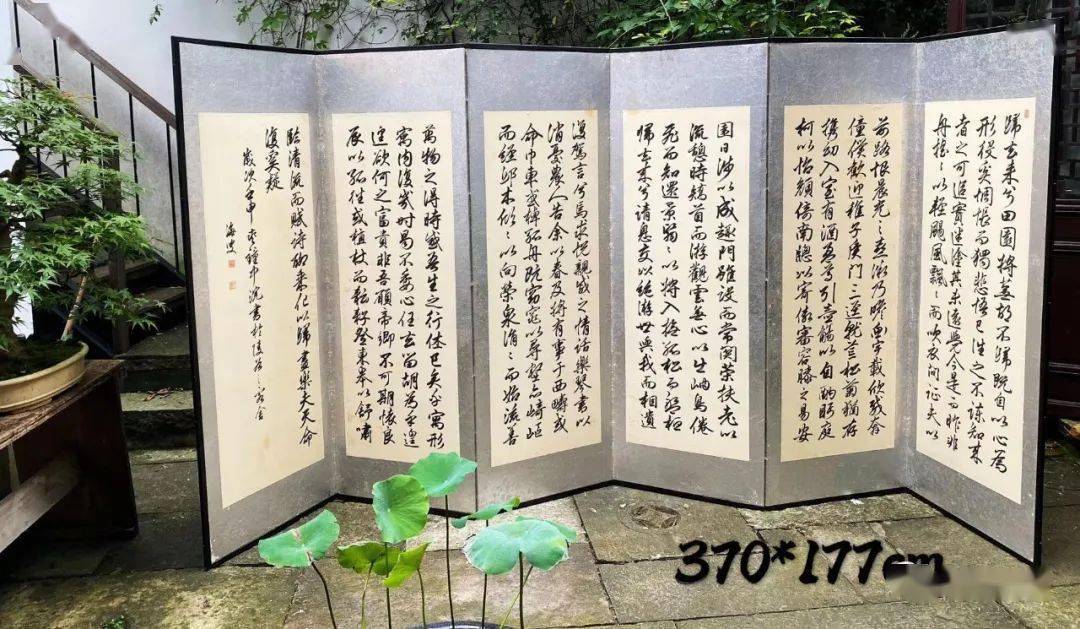 歸去來兮田園將蕪胡不歸既自以心為
形役奚惆悵而獨悲悟已往之不諫知來
者之可追實迷途其未遠覺今是而昨非
舟搖〻以輕颺風飄〻而吹衣問征夫以
前路恨晨光之熹微乃瞻衡宇載欣載奔
僮僕歡迎稚子候門三逕就荒松菊猶存
攜幼入室有酒盈尊引壺觴以自酌眄庭
柯以怡顏倚南牕以寄傲審容膝之易安
園日涉以成趣門雖設而常関策扶老以
流憩時矯首而游觀雲無心以出岫鳥倦
飛而知還景翳〻以將入撫孤松而盤桓
歸去來兮請息交以絕游世與我而相遺
復駕言兮焉求悅親戚之情話樂琴書以
消憂農人告余以春及將有事于西疇或
命巾車或棹孤舟既窈窕以尋壑亦崎嶇
而經邱木欣〻以向榮泉涓〻而始流善
萬物之得時感吾生之行休已矣乎寓形
寓內復幾時曷不委心任去留胡為乎遑
遑欲何之富貴非吾願帝鄉不可期懷良
辰以孤往或植杖而耘耔登東皋以舒嘯
臨清流而賦詩聊乘化以歸盡樂夫天命
復奚疑
歲次壬申
370*177cm